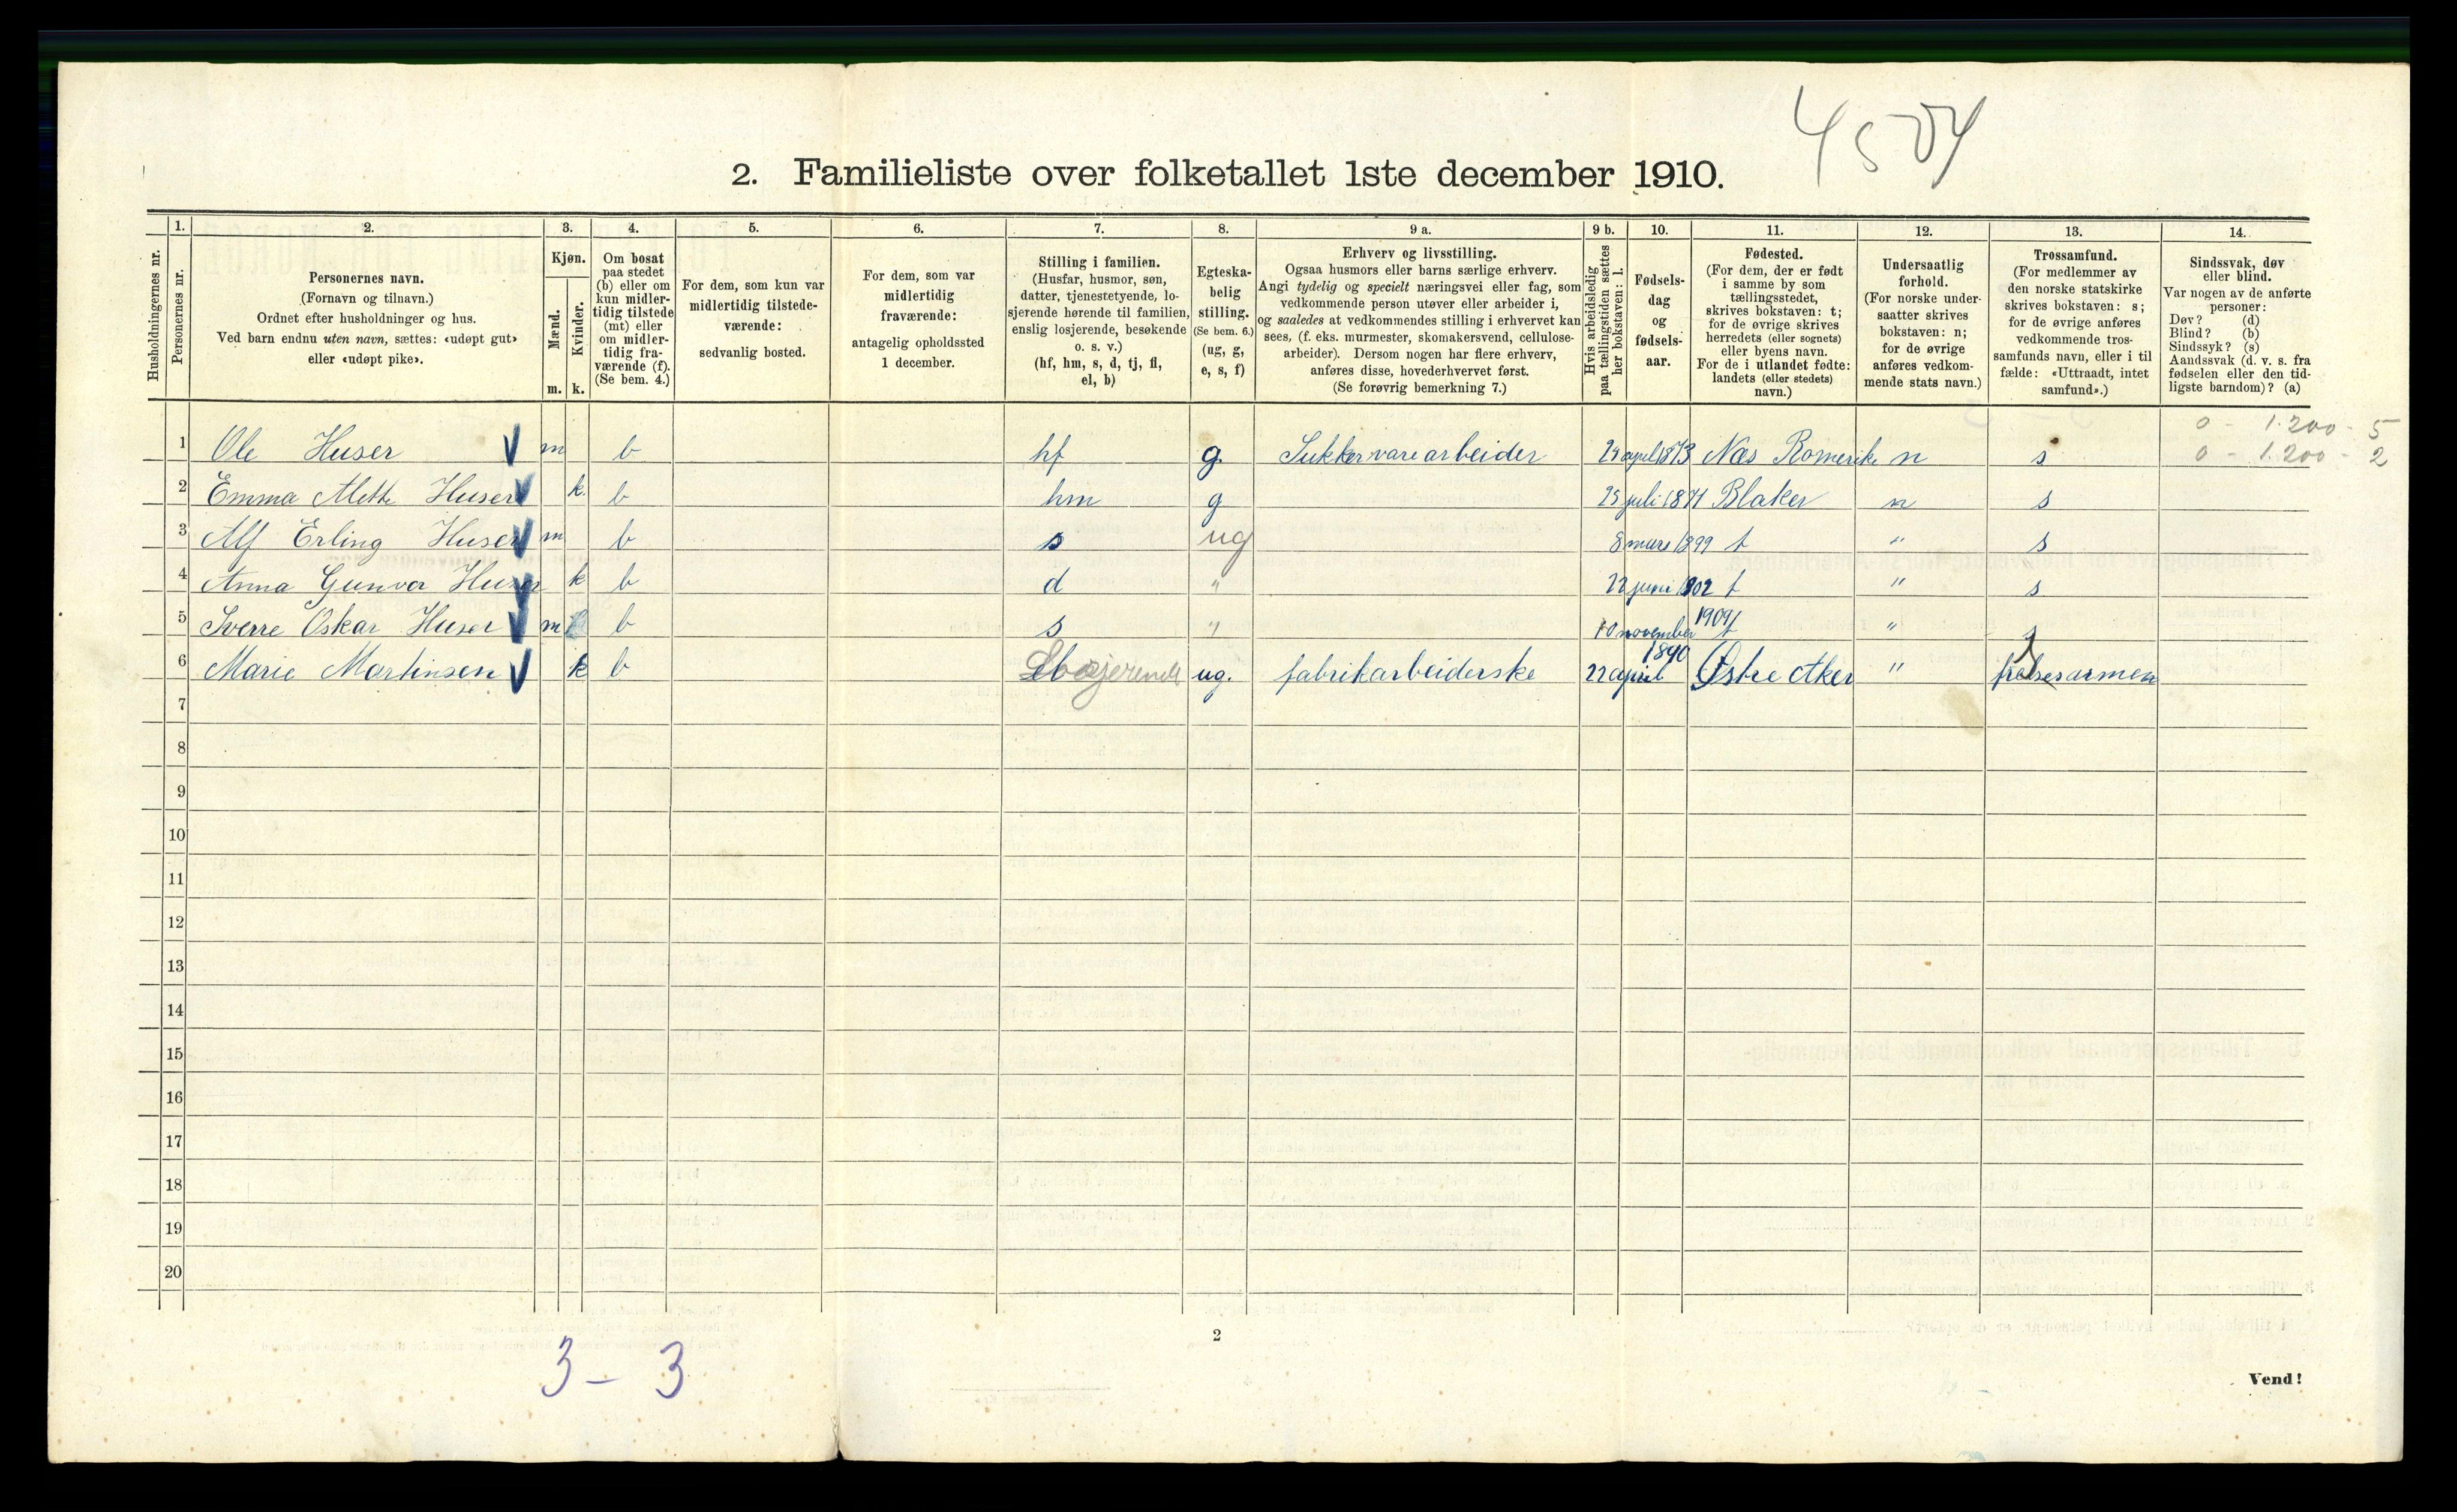 4504
2. Familieliste over folketallet 1ste december 1910.
Husholdningernes nr.
1.
Personernes nr.
2.
Personernes navn.
(Fornavn og tilnavn.)
Ordnet efter husholdninger og hus.
Ved barn endnu uten navn, sættes: «udøpt gut»
eller «udøpt pike».
3.
Kjøn.
Mænd.
m.
Kvinder.
k.
4.
Om bosat
paa stedet
(b) eller om
kun midler-
tidig tilstede
(mt) eller
om midler-
tidig fra-
værende (f).
(Se bem. 4.)
5.
For dem, som kun var
midlertidig tilstede-
værende:
sedvanlig bosted.
6.
For dem, som var
midlertidig
fraværende:
antagelig opholdssted
1 december.
7.
Stilling i familien.
(Husfar, husmor, søn,
datter, tjenestetyende, lo-
sjerende hørende til familien,
enslig losjerende, besøkende
o. s. v.)
(hf, hm, s, d, tj, fl,
el, b)
8.
Egteska-
belig
stilling.
(Se bem. 6.)
(ug, g,
e, s, f)
9 a.
Erhverv og livsstilling.
Ogsaa husmors eller barns særlige erhverv.
Angi tydelig og specielt næringsvei eller fag, som
vedkommende person utøver eller arbeider i,
og saaledes at vedkommendes stilling i erhvervet kan
sees, (f. eks. murmester, skomakersvend, cellulose-
arbeider). Dersom nogen har flere erhverv,
anføres disse, hovederhvervet først.
(Se forøvrig bemerkning 7.)
9 b.
Hvis arbeidsledig
paa tællingstiden sættes
her bokstaven: l.
10.
Fødsels-
dag
og
fødsels-
aar.
11.
Fødested.
(For dem, der er født
i samme by som
tællingsstedet,
skrives bokstaven: t;
for de øvrige skrives
herredets (eller sognets)
eller byens navn.
For de i utlandet fødte:
landets (eller stedets)
navn.)
12.
Undersaatlig
forhold.
(For norske under-
saatter skrives
bokstaven: n;
for de øvrige
anføres vedkom-
mende stats navn.)
13.
Trossamfund.
(For medlemmer av
den norske statskirke
skrives bokstaven: s;
for de øvrige anføres
vedkommende tros-
samfunds navn, eller i til
fælde: «Uttraadt, intet
samfund».)
14.
Sindssvak, døv
eller blind.
Var nogen av de anførte
personer:
Døv? (d)
Blind? (b)
Sindssyk? (s)
Aandssvak (d. v. s. fra
fødselen eller den tid-
ligste barndom)? (a)
0 - 1.200 - 5
0 - 1.200 - 2
1 Ole Huser m b hf g. Sukkervarearbeider april 1873 Næs Romerike n s
2 Emma Mette Huser k. b hm g 25 juli 1871 Blaker n s
3 Alf Erling Huser m b s ug 8 mars 1899 t " s
4 Anna Gunvor Huser k b d " 22 juni 1902 t " s
5 Sverre Oskar Huser m b s " 10 november 1909 t " s
6 Marie Martinsen k b losjerende ug. fabrikarbeiderske 22 april 1890 Østre Aker " frelsesarmen
7
8
9
10
11
12
13
14
15
16
17
18
19
20
2
3 - 3
Vend!